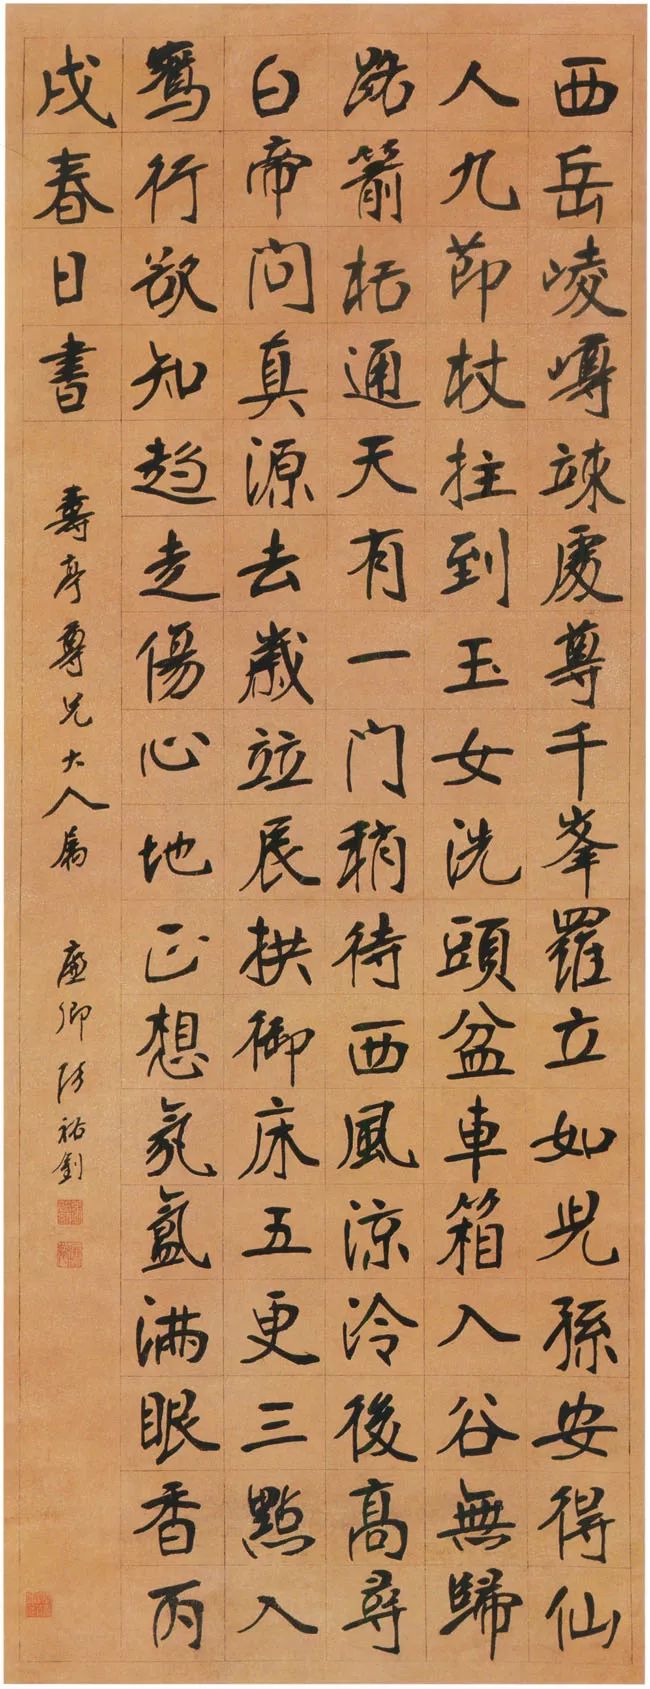 西岳崚嶒竦處尊千峯羅立如兒孫安得仙
人九莭杖拄到玉女洗頭盆車箱入谷無歸
路箭栝通天有一門稍待西風涼冷後高尋
白帝問真源去歲竝辰拱御床五更三點入
鵷行欲知趍走傷心地正想氛氳滿眼香丙
戌春日書
壽亭尊兄大人屬
廉卿張裕釗